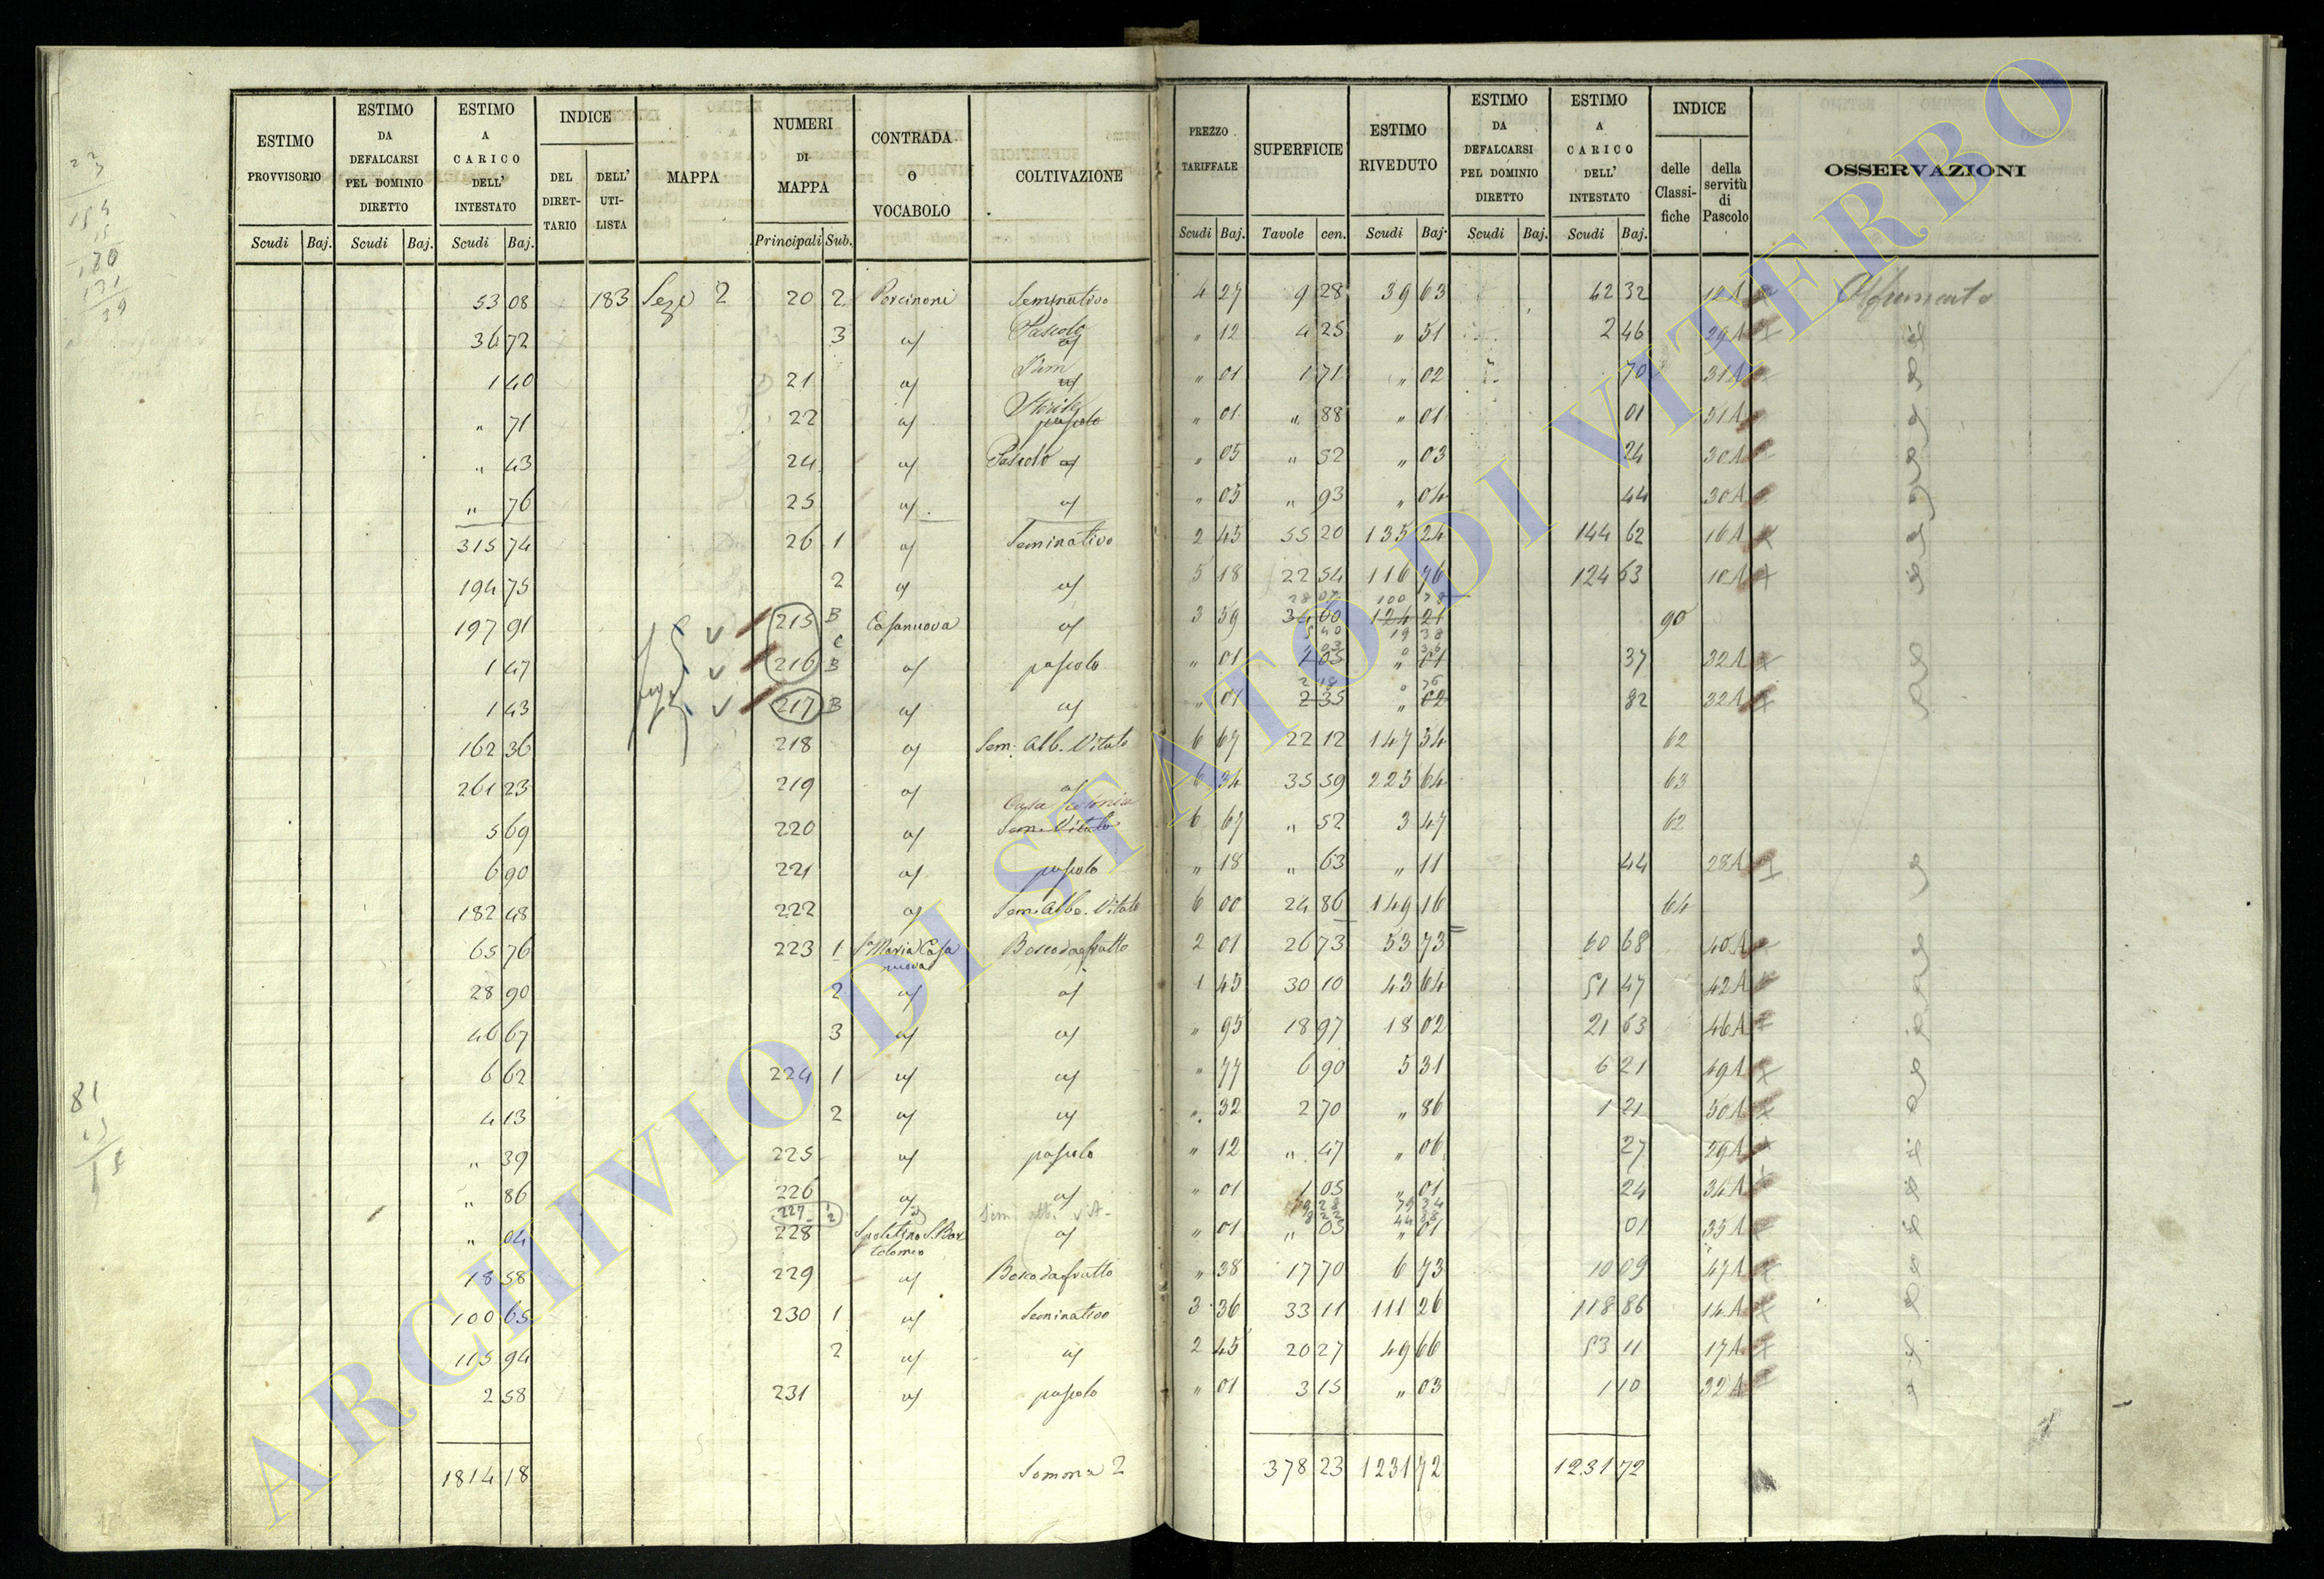 ESTIMO PROVVISORIO | ESTIMO DA DEFALCARSI PEL DOMINIO DIRETTO | ESTIMO A CARICO DELL' INTESTATO | INDICE DEL DIRETTARIO | DELL' UTILISTA | MAPPA | NUMERI DI MAPPA | CONTRADA O VOCABOLO | COLTIVAZIONE | PREZZO TARIFFALE | SUPERFICIE | ESTIMO RIVEDUTO | ESTIMO DA DEFALCARSI PEL DOMINIO DIRETTO | ESTIMO A CARICO DELL' INTESTATO | INDICE delle Classifiche | della servitù di Pascolo | OSSERVAZIONI
Scudi Baj. | Scudi Baj. | Scudi Baj. | Principali Sub. | Scudi Baj. | Tavole cen. | Scudi Baj. | Scudi Baj. | Scudi Baj.
53 08 183 Seze 2 20 2 Porcinoni Seminativo 4 27 9 28 39 63 42 32 12A
36 72 3 Pascolo " 12 4 25 " 51 2 46 29A
1 40 21 " 01 1 71 " 02 70 31A
" 71 22 Sterile pascolo " 01 " 88 " 01 01 31A
" 43 24 Pascolo " 05 " 52 " 03 24 30A
" 76 25 " 05 " 93 " 04 44 30A
315 74 26 1 Seminativo 2 45 55 20 135 24 144 62 16A
194 75 2 5 18 22 54 116 76 124 63 10A
28 07 100 78
197 91 215 B Casanuova 3 59 34 60 124 21 90
C 5 40 19 38
1 47 216 B pascolo " 01 1 05 " 01 37 32A
1 43 217 B " 01 2 35 " 02 82 32A
162 36 218 Sem. Alb. Vitato 6 67 22 12 147 54 62
261 23 219 6 34 35 59 225 64 63
Casa colonica
5 69 220 Sem. Vitato 6 67 " 52 3 47 62
6 90 221 pascolo " 18 " 63 " 11 44 28A
182 48 222 Sem. Alb. Vitato 6 00 24 86 149 16 64
65 76 223 1 Sa Maria Casa nuova Bosco da frutto 2 01 26 73 53 73 60 68 40A
28 90 2 1 45 30 10 43 64 51 47 42A
46 67 3 " 95 18 97 18 02 21 63 46A
6 62 224 1 " 77 6 90 5 31 6 21 49A
4 13 2 " 32 2 70 " 86 1 21 50A
" 39 225 pascolo " 12 " 47 " 06 27 29A
" 86 226 " 01 1 05 " 01 24 34A
227 1/2 Sem. alb. vit.
" 04 228 S. Bartolomeo " 01 " 05 " 01 01 35A
18 58 229 Bosco da frutto " 38 17 70 6 73 10 09 47A
100 65 230 1 Seminativo 3 36 33 11 111 26 118 86 14A
115 94 2 2 45 20 27 49 66 53 11 17A
2 58 231 pascolo " 01 3 15 " 03 1 10 32A
1814 18 Somma 2 378 23 1231 72 1231 72
81
ARCHIVIO DI STATO DI VITERBO